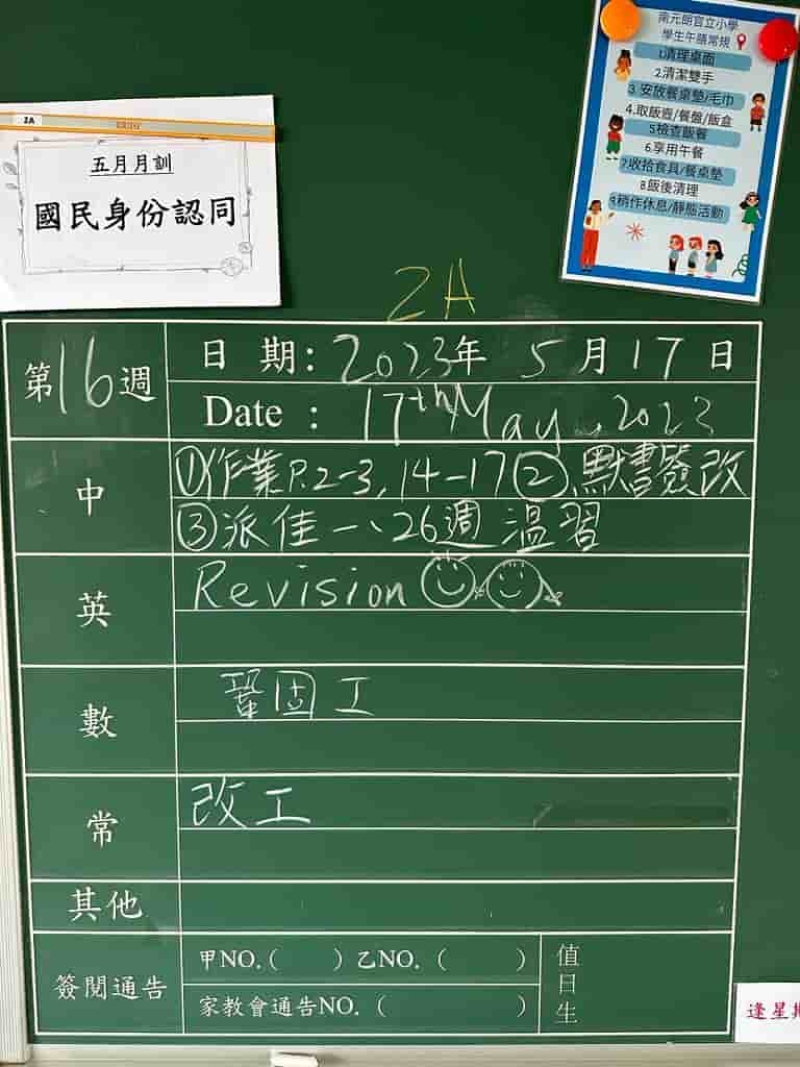 2A
五月月訓
國民身份認同
南元朗官立小學
學生午膳常規
1.清理桌面
2.清潔雙手
3.安放餐桌墊/毛巾
4.取飯壺/餐盤/飯盒
5.檢查飯餐
6.享用午餐
7.收拾食具/餐桌墊
8.飯後清理
9.稍作休息/靜態活動
2A
第16週
日期:2023年5月17日
Date : 17th May, 2023
中
①作業P.2-3, 14-17②默書簽改
③派佳一、26週溫習
英
Revision
數
鞏固工
常
改工
其他
簽閱通告
甲NO.( ) 乙NO. ( )
家教會通告NO. ( )
值日生
逢星期